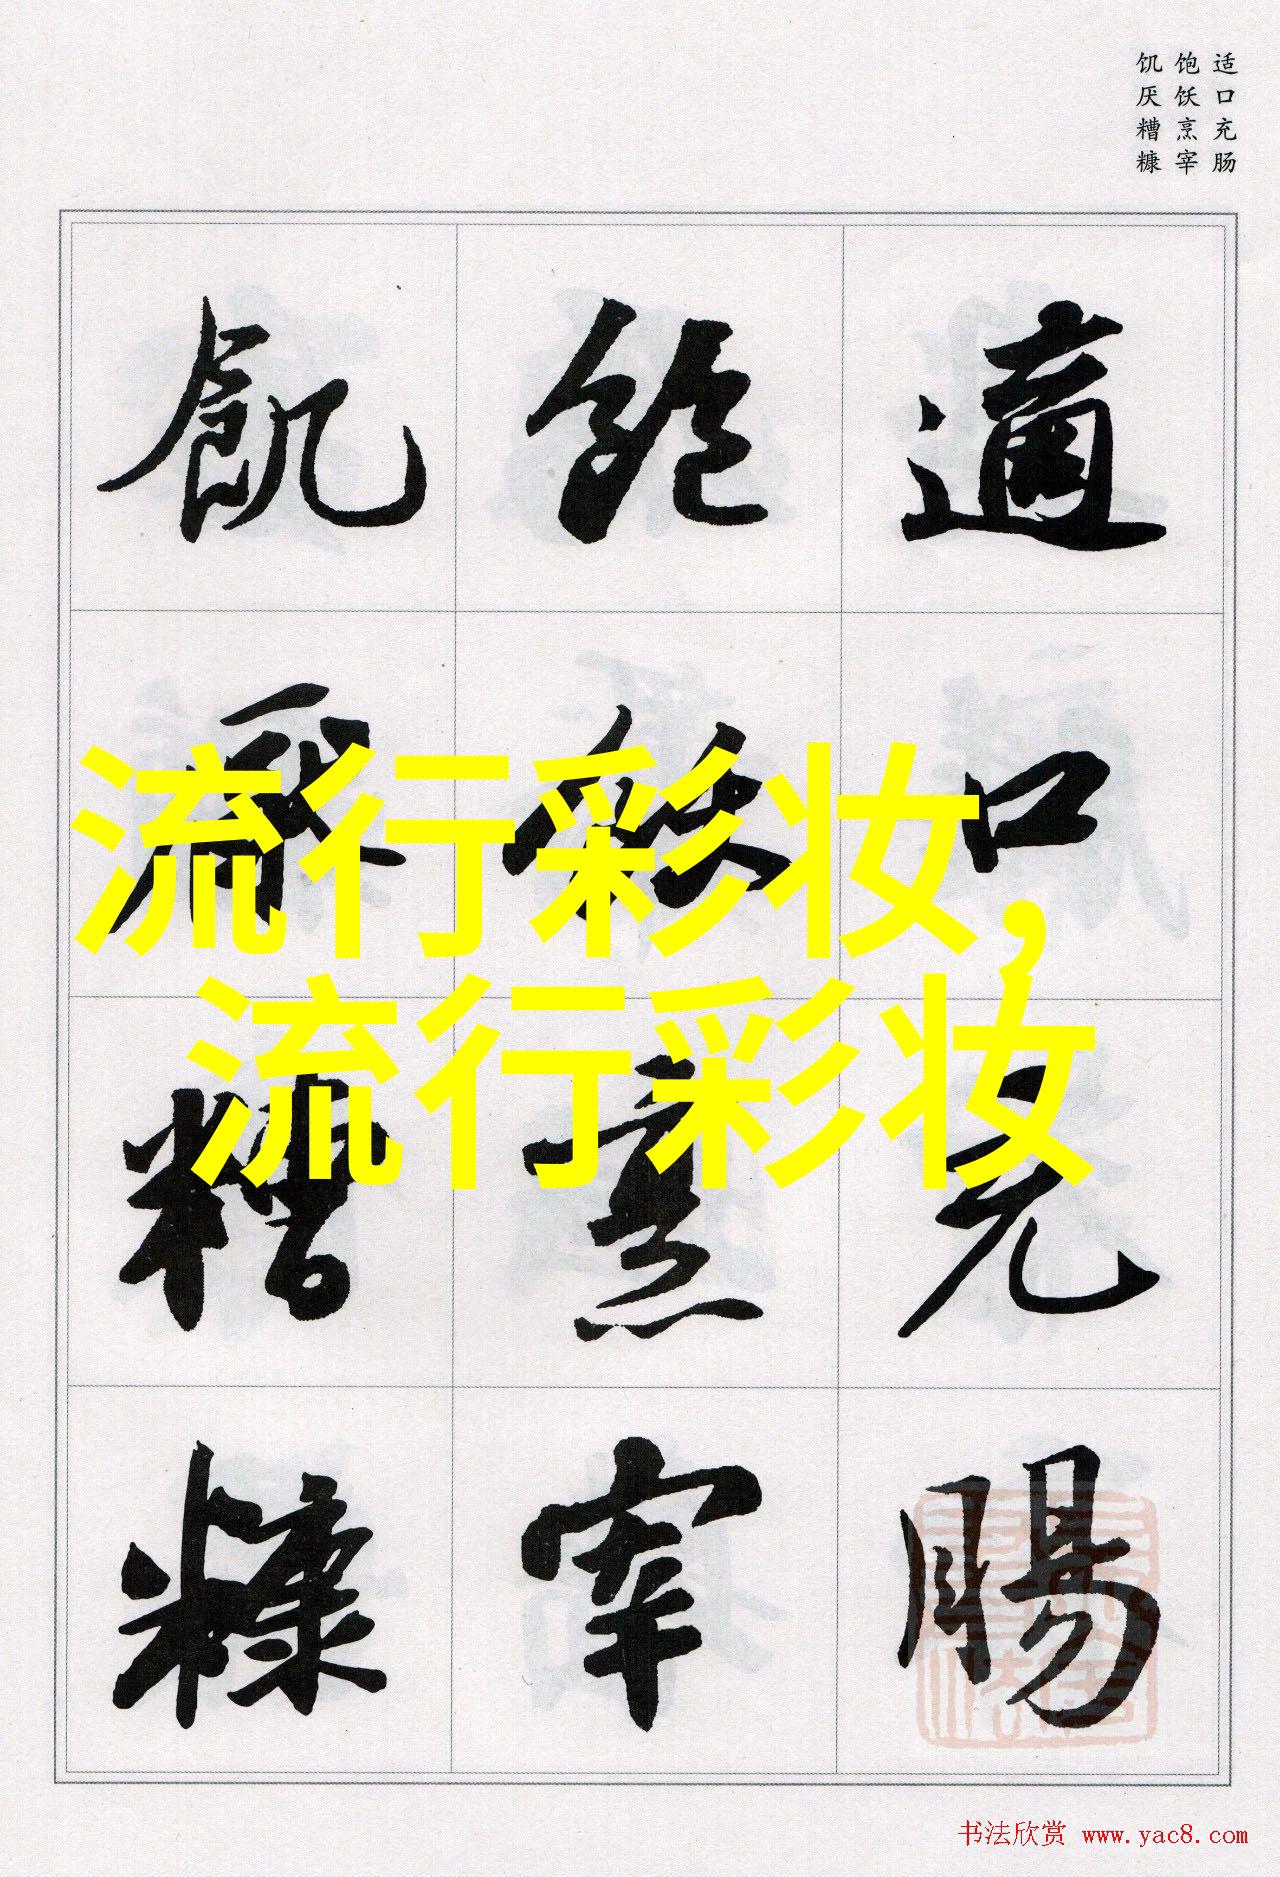 适口充肠
饱饫烹宰
饥厌糟糠
適口充腸
飽飫烹宰
飢厭糟糠
流行彩妆,
流行彩妆
书法欣赏 www.yac8.com